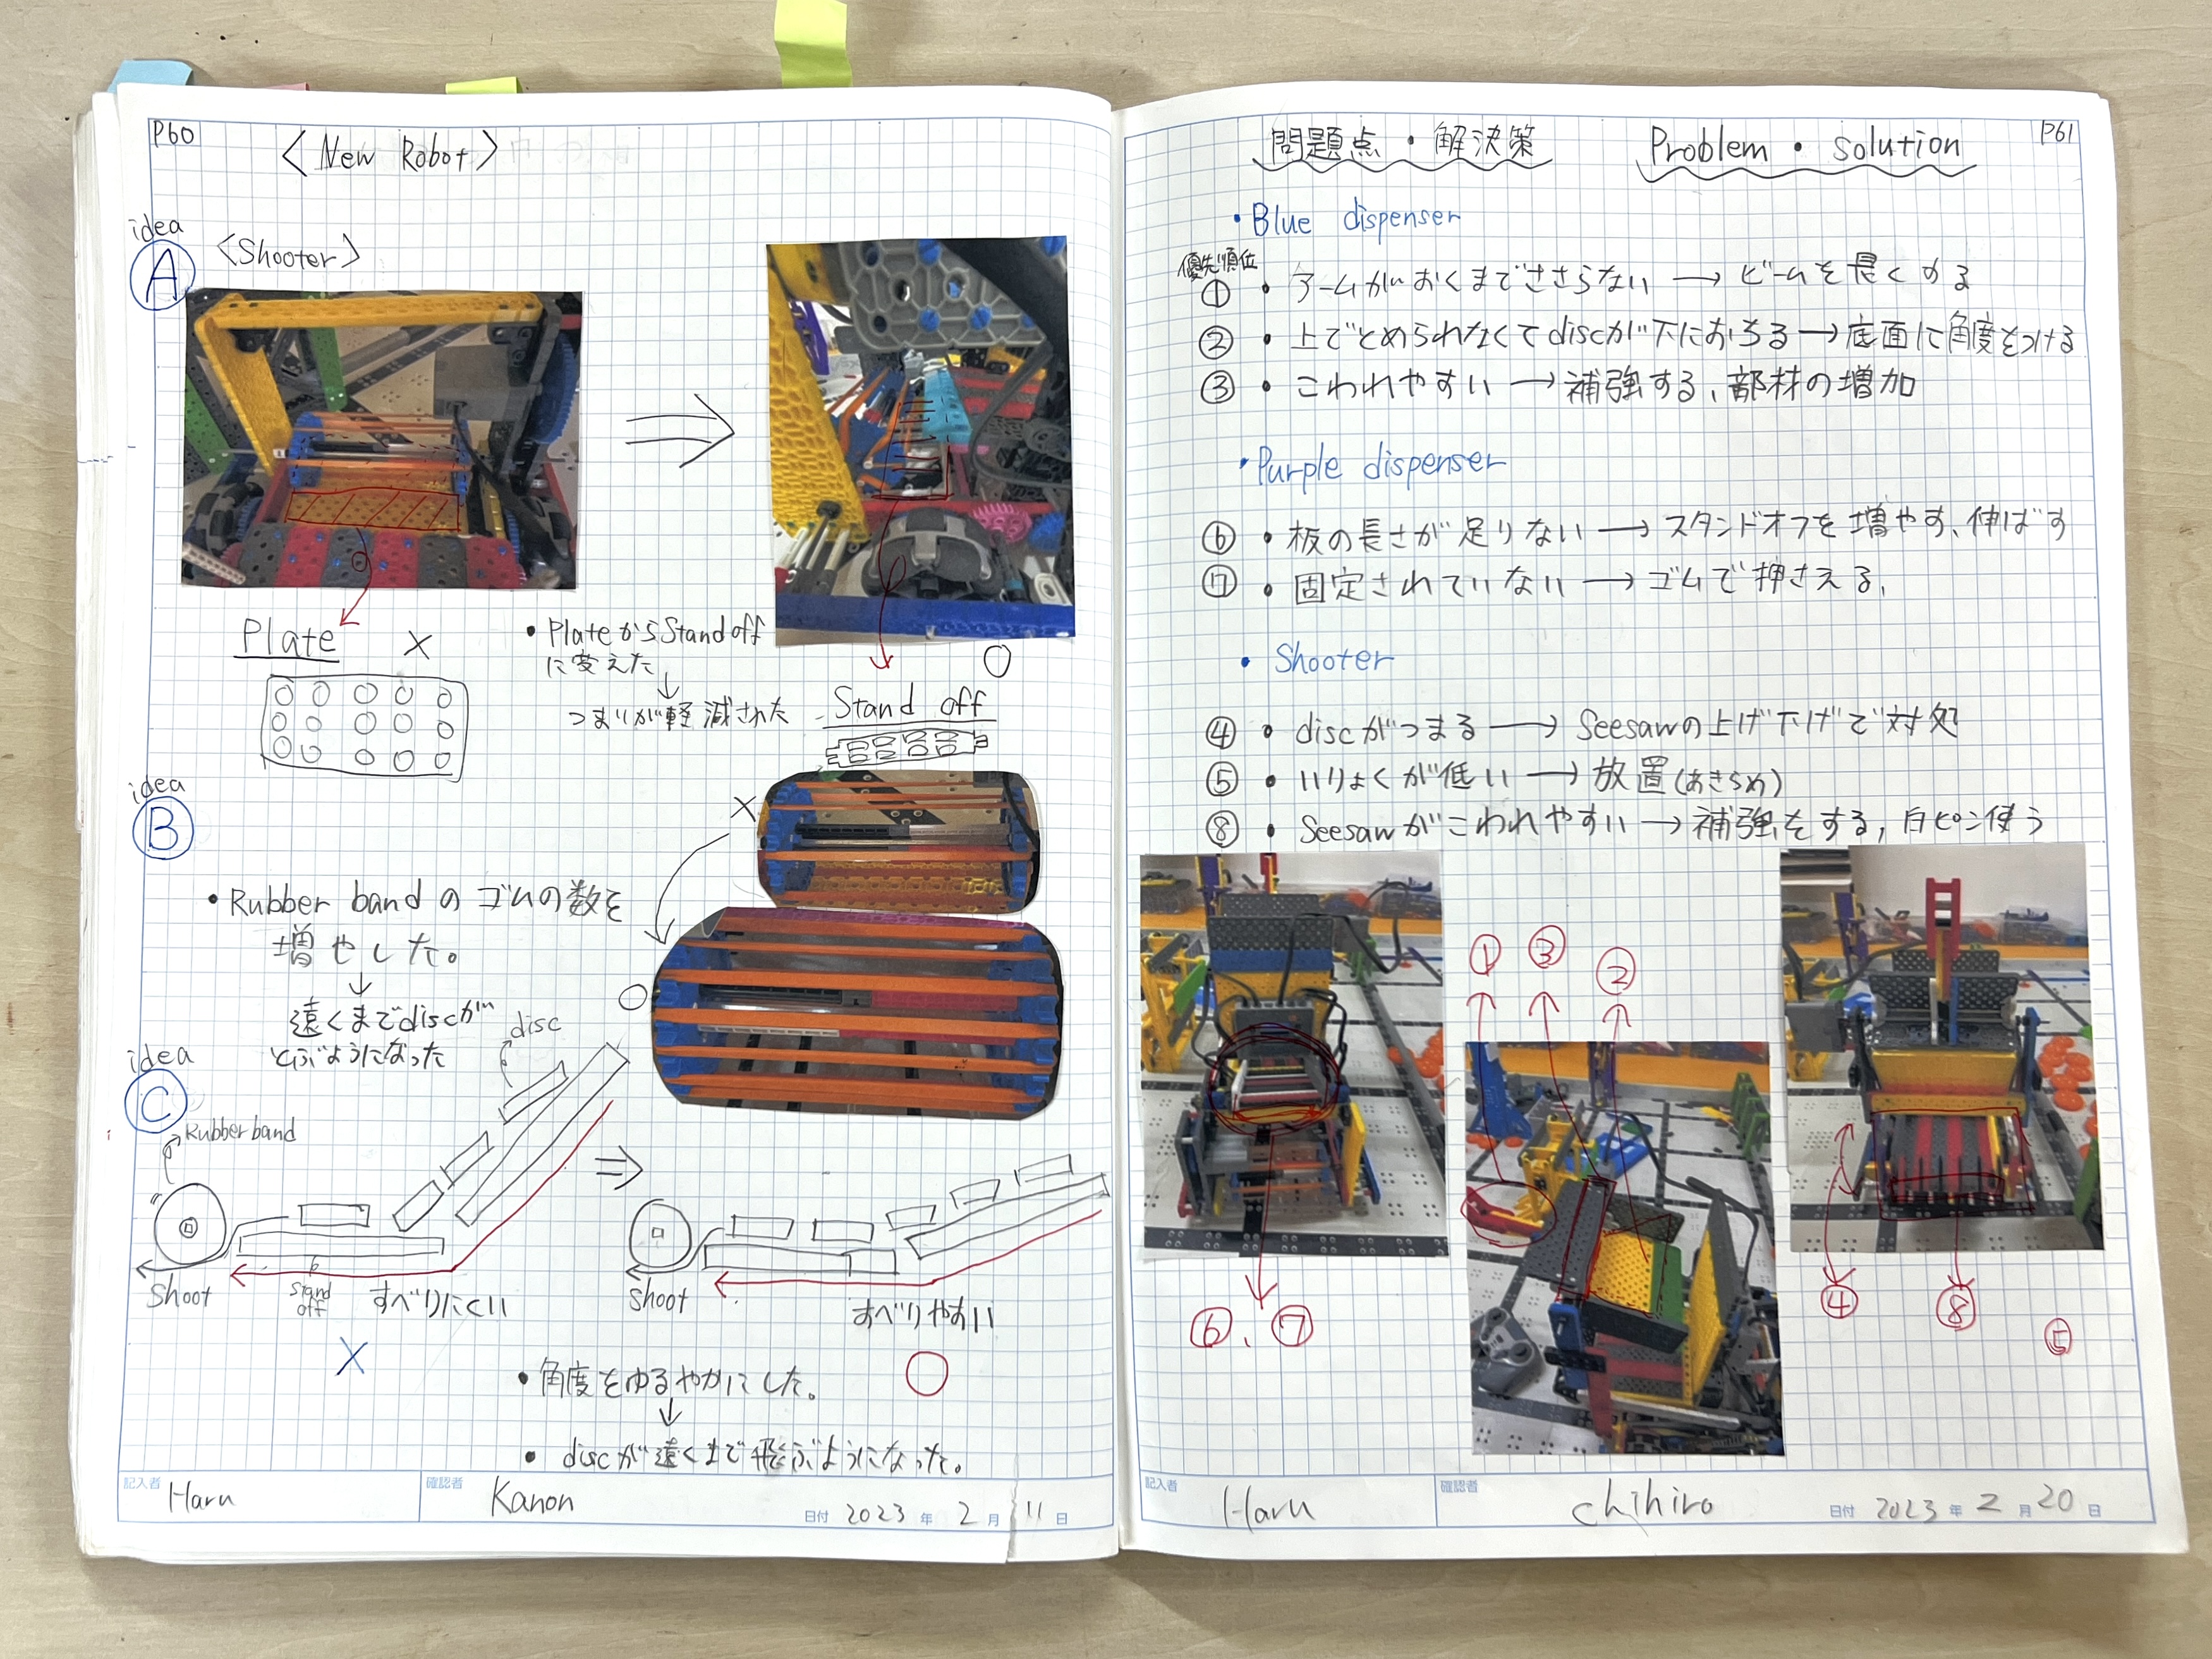 P60
<New Robot>
idea
A
<Shooter>
Plate
×
・PlateからStand off
に変えた
↓
つまりが軽減された
○
Stand off
idea
B
×
○
・Rubber band の ゴムの数を
増やした。
↓
遠くまでdiscが
とぶようになった
idea
C
disc
Rubber band
Shoot
Stand
off
すべりにくい
×
⇒
Shoot
すべりやすい
○
・角度をゆるやかにした。
↓
・discが遠くまで飛ぶようになった。
記入者 Haru
確認者 Kanon
日付 2023 年 2 月 11 日
P61
問題点・解決策 Problem・solution
・Blue dispenser
優先順位
① ・アームがおくまでささらない → ビームを長くする
② ・上でとめられなくてdiscが下におちる → 底面に角度をつける
③ ・こわれやすい → 補強する、部材の増加
・Purple dispenser
⑥ ・板の長さが足りない → スタンドオフを増やす、伸ばす
⑦ ・固定されていない → ゴムで押さえる、
・Shooter
④ ・discがつまる → Seesawの上げ下げで対処
⑤ ・いりょくが低い → 放置(あきらめ)
⑧ ・Seesawがこわれやすい → 補強をする, 白ピン使う
① ③ ②
⑥、⑦
④ ⑧ ⑤
記入者 Haru
確認者 chihiro
日付 2023 年 2 月 20 日